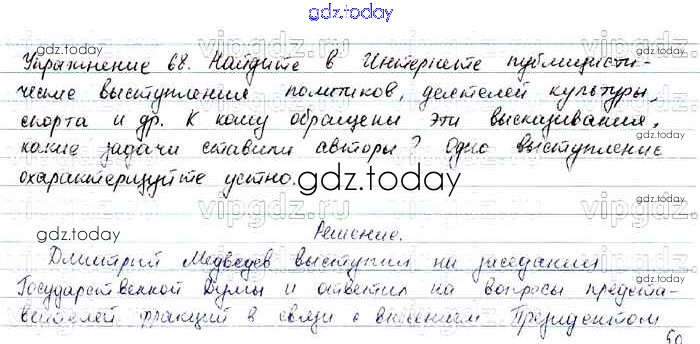 gdz.today
gdz.today
gdz.today
Упражнение 68. Найдите в Интернете публицисти-
ческие выступления политиков, деятелей культуры,
спорта и др. К кому обращены эти высказывания,
какие задачи ставили авторы? Одно выступление
охарактеризуйте устно.
gdz.today
gdz.today
Решение.
Дмитрий Медведев выступил на заседании
gdz.today
Государственной Думы и ответил на вопросы предста-
вителей фракций в связи с внесением Президентом
gdz.today